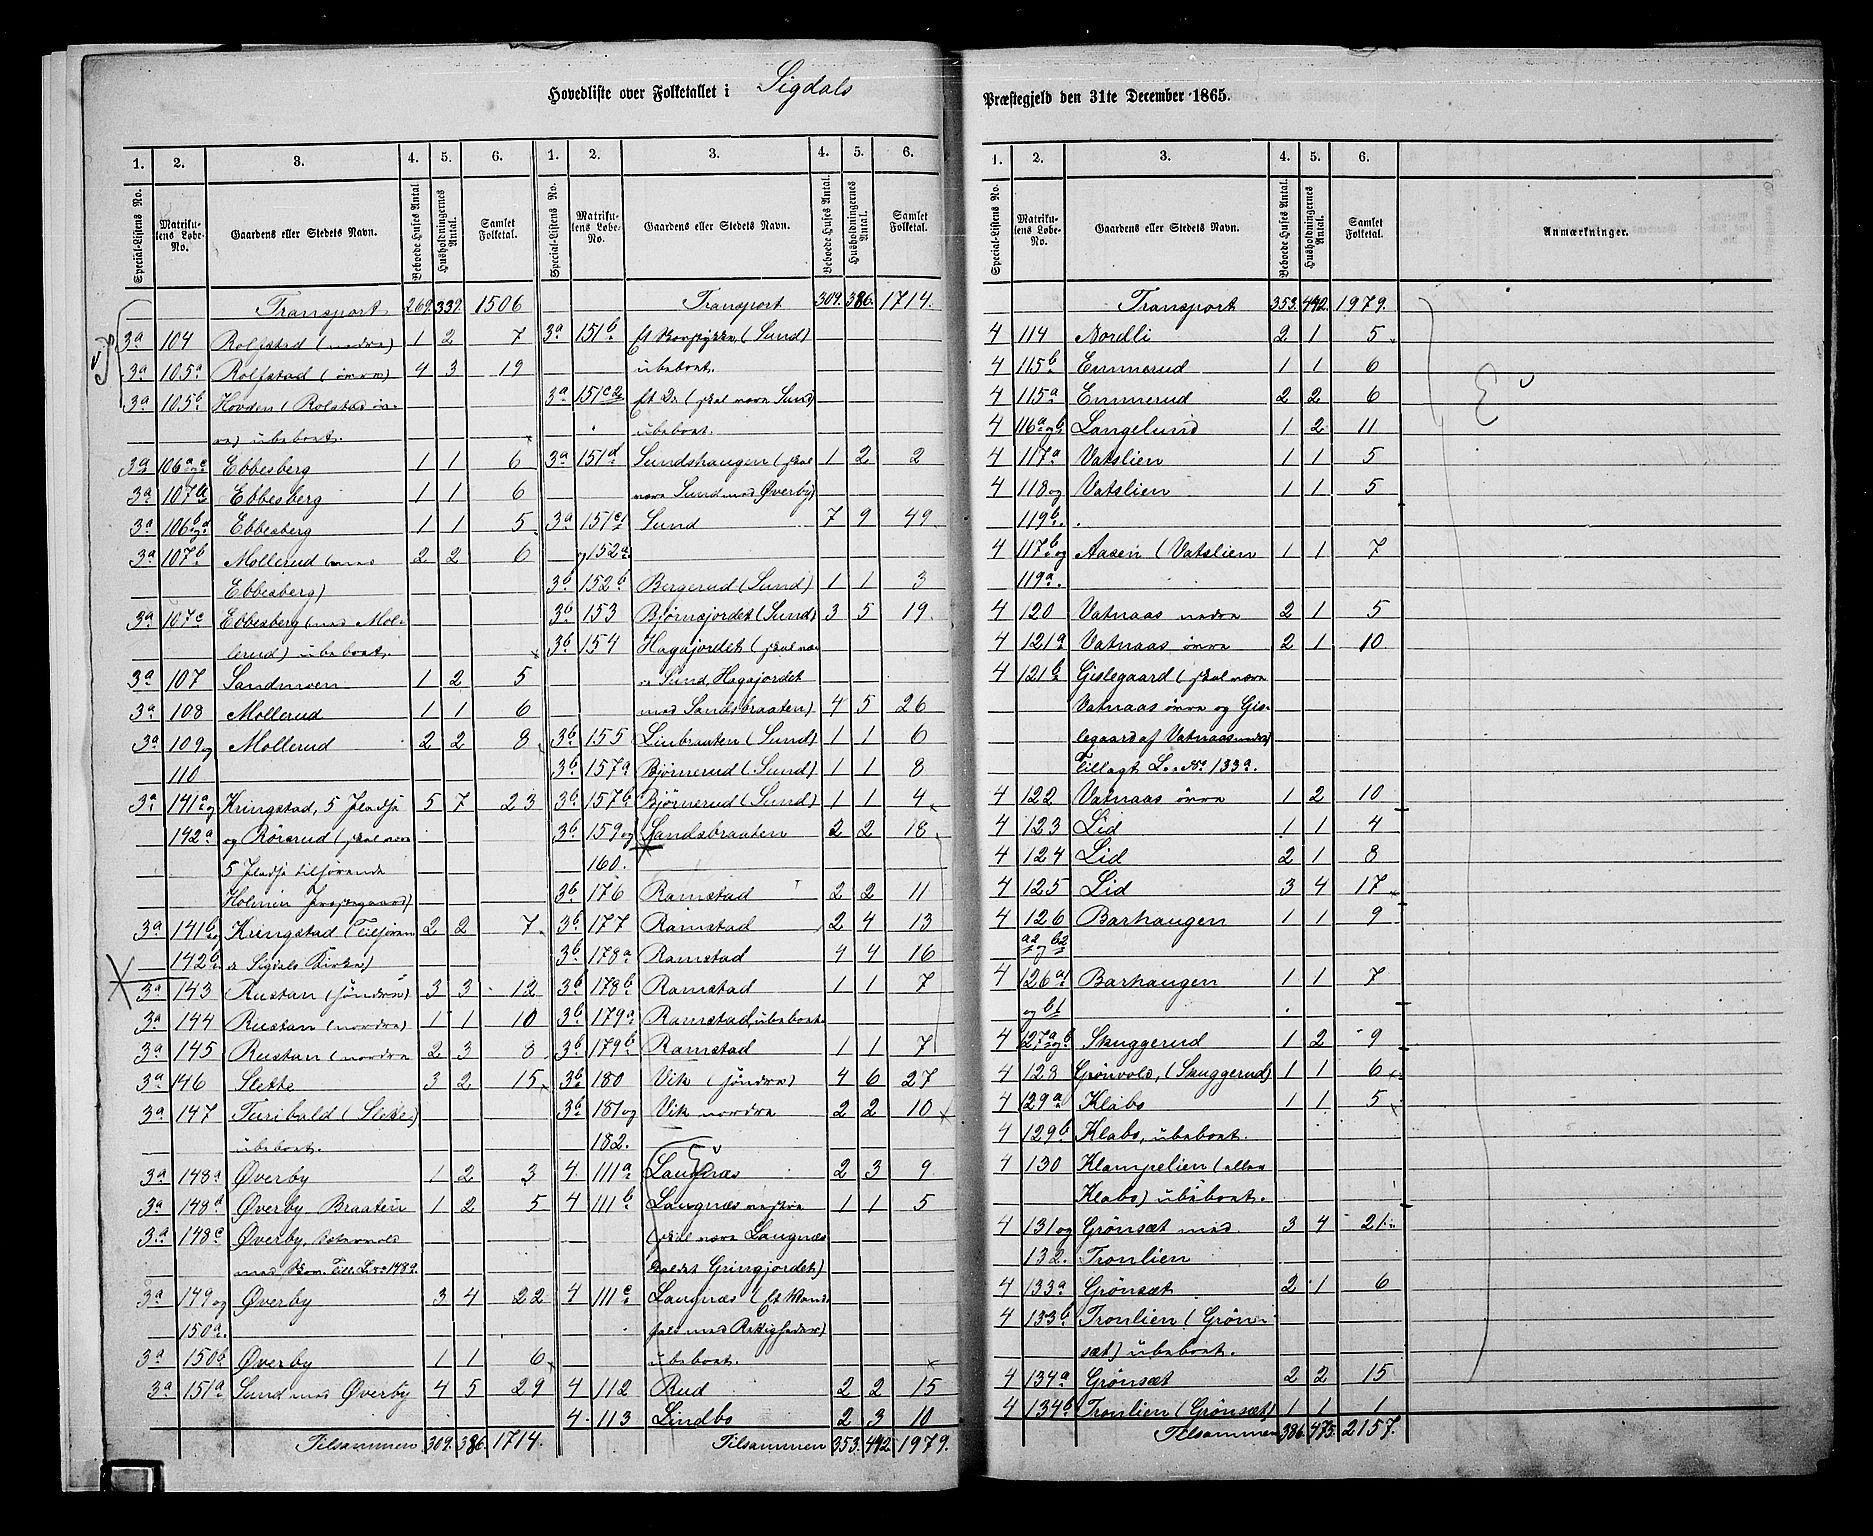 Hovedliste over Folketallet i Sigdals
Præstegjeld den 31te December 1865.
1. 2. 3. 4. 5. 6.
Special-Listens No. Matrikulens Løbe-No. Gaardens eller Stedets Navn. Beboede Huses Antal. Husholdningernes Antal. Samlet Folketal.
Transport 269. 339. 1506
3a 104 Rolfstad (nedre) 1 2 7
3a 105a Rolfstad (øvre) 4 3 19
3a 105b Hovden (Rolstad øv-
re) ubeboet.
3a 106a og c Ebbesberg 1 1 6
3a 107d Ebbesberg 1 1 6
3a 106b og d Ebbesberg 1 1 5
3a 107b Mollerud (med 2 2 6
Ebbesberg)
3a 107c Ebbesberg (med Mol-
lerud) ubeboet.
3a 107 Sandmoen 1 2 5
3a 108 Mollerud 1 1 6
3a 109 og Mollerud 2 2 8
110
3a 141a og Kringstad, 5 Pladse 5 7 23
142a og Rörerud (skal være
5 Pladse tilhörende
Holmen Prestegaard)
3a 141b og Kringstad (Tilhören 2 2 7
142b de Sigdals Kirke)
3a 143 Rustan (söndre) 3 3 12
3a 144 Rustan (nordre) 1 1 10
3a 145 Rustan (nordre 2 3 8
3a 146 Slette 3 2 15
3a 147 Turibald (Slette)
ubeboet.
3a 148a Øverby 1 2 3
3a 148d Øverby Braaten 1 2 5
3a 148c Øverby,
3a 149 og Øverby 3 4 22
150a.
3a 150b Øverby 1 1 6
3a 151a Sund med Øverby 4 5 29
Tilsammen 309. 386. 1714.
1. 2. 3. 4. 5. 6.
Special-Listens No. Matrikulens Løbe-No. Gaardens eller Stedets Navn. Beboede Huses Antal. Husholdningernes Antal. Samlet Folketal.
Transport 309. 386. 1714.
3a 151b (Sund)
ubeboet.
3a 151c2 et Do (skal være Sund
ubeboet.
3a 151d Sundshaugen (skal 1 2 2
være Sund med Øverby)
3a 151c1 Sund 7 9 49
og 152a
3b 152b Bergerud (Sund) 1 1 3
3b 153 Björnsjordet (Sund) 3 5 19
3b 154 Hagajordet (skal væ-
re Sund, Hagajordet
med Sandsbraaten) 4 5 26
3b 155 Linbraaten (Sund) 1 1 6
3b 157a Björnerud (Sund) 1 1 8
3b 157b Björnerud (Sund) 1 1 4
3b 159 og Sandsbraaten 2 2 18
160.
3b 176 Ramstad 2 2 11
3b 177 Ramstad 2 4 13
3b 178a Ramstad 4 4 16
3b 178b Ramstad 1 1 7
3b 179a Ramstad, ubeboet.
3b 179b Ramstad 1 1 7
3b 180 Vik (söndre) 4 6 27
3b 181 og Vik nordre 2 2 10
182.
4 111a Langnæs 2 3 9
4 111b Langnæs vestre 1 1 5
(skal være Langnæs
kaldet Gringjordet)
4 111c Langnæs (et Vand-
fald med Rettigheder)
ubeboet.
4 112 Rud 2 2 15
4 113 Lindbo 2 3 10
Tilsammen 353. 442. 1979.
1. 2. 3. 4. 5. 6.
Special-Listens No. Matrikulens Løbe-No. Gaardens eller Stedets Navn. Beboede Huses Antal. Husholdningernes Antal. Samlet Folketal. Anmærkninger.
Transport 353. 442. 1979.
4 114 Nordli 2 1 5
4 115b Emmerud 1 1 6
4 115a Emmerud 2 2 6
4 116a og b Langelund 1 2 11
4 117a Vatslien 1 1 5
4 118 og Vatslien 1 1 5
119b.
4 117b og Aasen (Vatslien 1 1 7
119a.
4 120 Vatnaas nedre 2 1 5
4 121a Vatnaas övre 2 1 10
4 121b Gislegaard (skal være
Vatnaas övre og Gis-
legaard af Vatnaas nedre)
Tillagt L. No 133a.
4 122 Vatnaas övre 1 2 10
4 123 Lid 1 1 4
4 124 Lid 2 1 8
4 125 Lid 3 4 17
4 126 Barhaugen 1 1 9
a2 og b2
4 126a1 Barhaugen 1 1 7
og b1
4 127a og b Skuggerud 1 2 9
4 128 Grönvold, (Skuggerud) 1 1 6
4 129a Klabo 1 1 5
4 129b Klabo, ubeboet.
4 130 Klampelien (eller
Klabo) ubeboet.
4 131 og Grönsæt med 3 4 21
132. Tronlien
4 133a Grönsæt 2 1 6
4 133b Tronlien (Grön-
sæt) ubeboet.
4 134a Grönsæt 2 2 15
4 134b Tronlien (Grönsæt) 1 1 1
Tilsammen 386. 475. 2157.